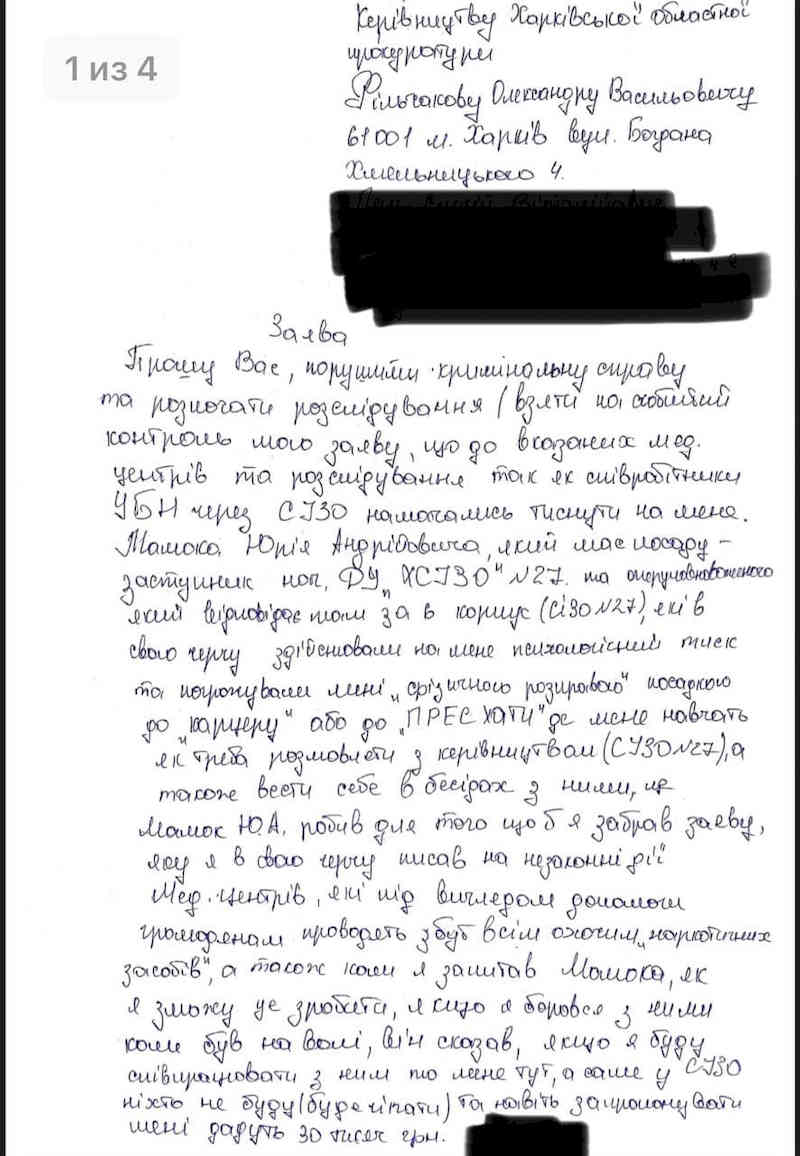 Керівництву Харківської обласної
1 из 4
прокуратури
Фільчакову Олександру Васильовичу
61001 м. Харків вул. Богдана
Хмельницького 4.
Заява
Прошу Вас, порушити кримінальну справу
та розпочати розслідування / взяти на особистий
контроль мою заяву, що до вказаних мед.
центрів та розслідування так як співробітники
УБН через СІЗО намагались тиснути на мене.
Мамока Юрія Андрійовича, який має посаду –
заступник нач, ДУ „ХСІЗО" N27. та оперуповноваженого
який відповідає там за в корпус (СІЗО N27), які в
свою чергу здійснювали на мене психологічний тиск
та погрожували мені „фізичного розправою" посадкою
до „карцеру" або до „ПРЕС ХАТИ" де мене навчать
як треба розмовляти з керівництвом (СІЗО N27), а
також вести себе в бесідах з ними, це
Мамок Ю.А. робив для того щоб я забрав заяву,
яку я в свою чергу писав на незаконні дії
Мед. центрів, які під виглядом допомоги
громадянам проводять збут всім охочим „наркотичних
засобів", а також коли я запитав Мамока, як
я зможу це зробити, якщо я боровся з ними
коли був на волі, він сказав, якщо я буду
співпрацювати з ним то мене тут, а саме у СІЗО
ніхто не буду (буде чіпати) та навіть запропонувати
мені дадуть 30 тисяч грн.